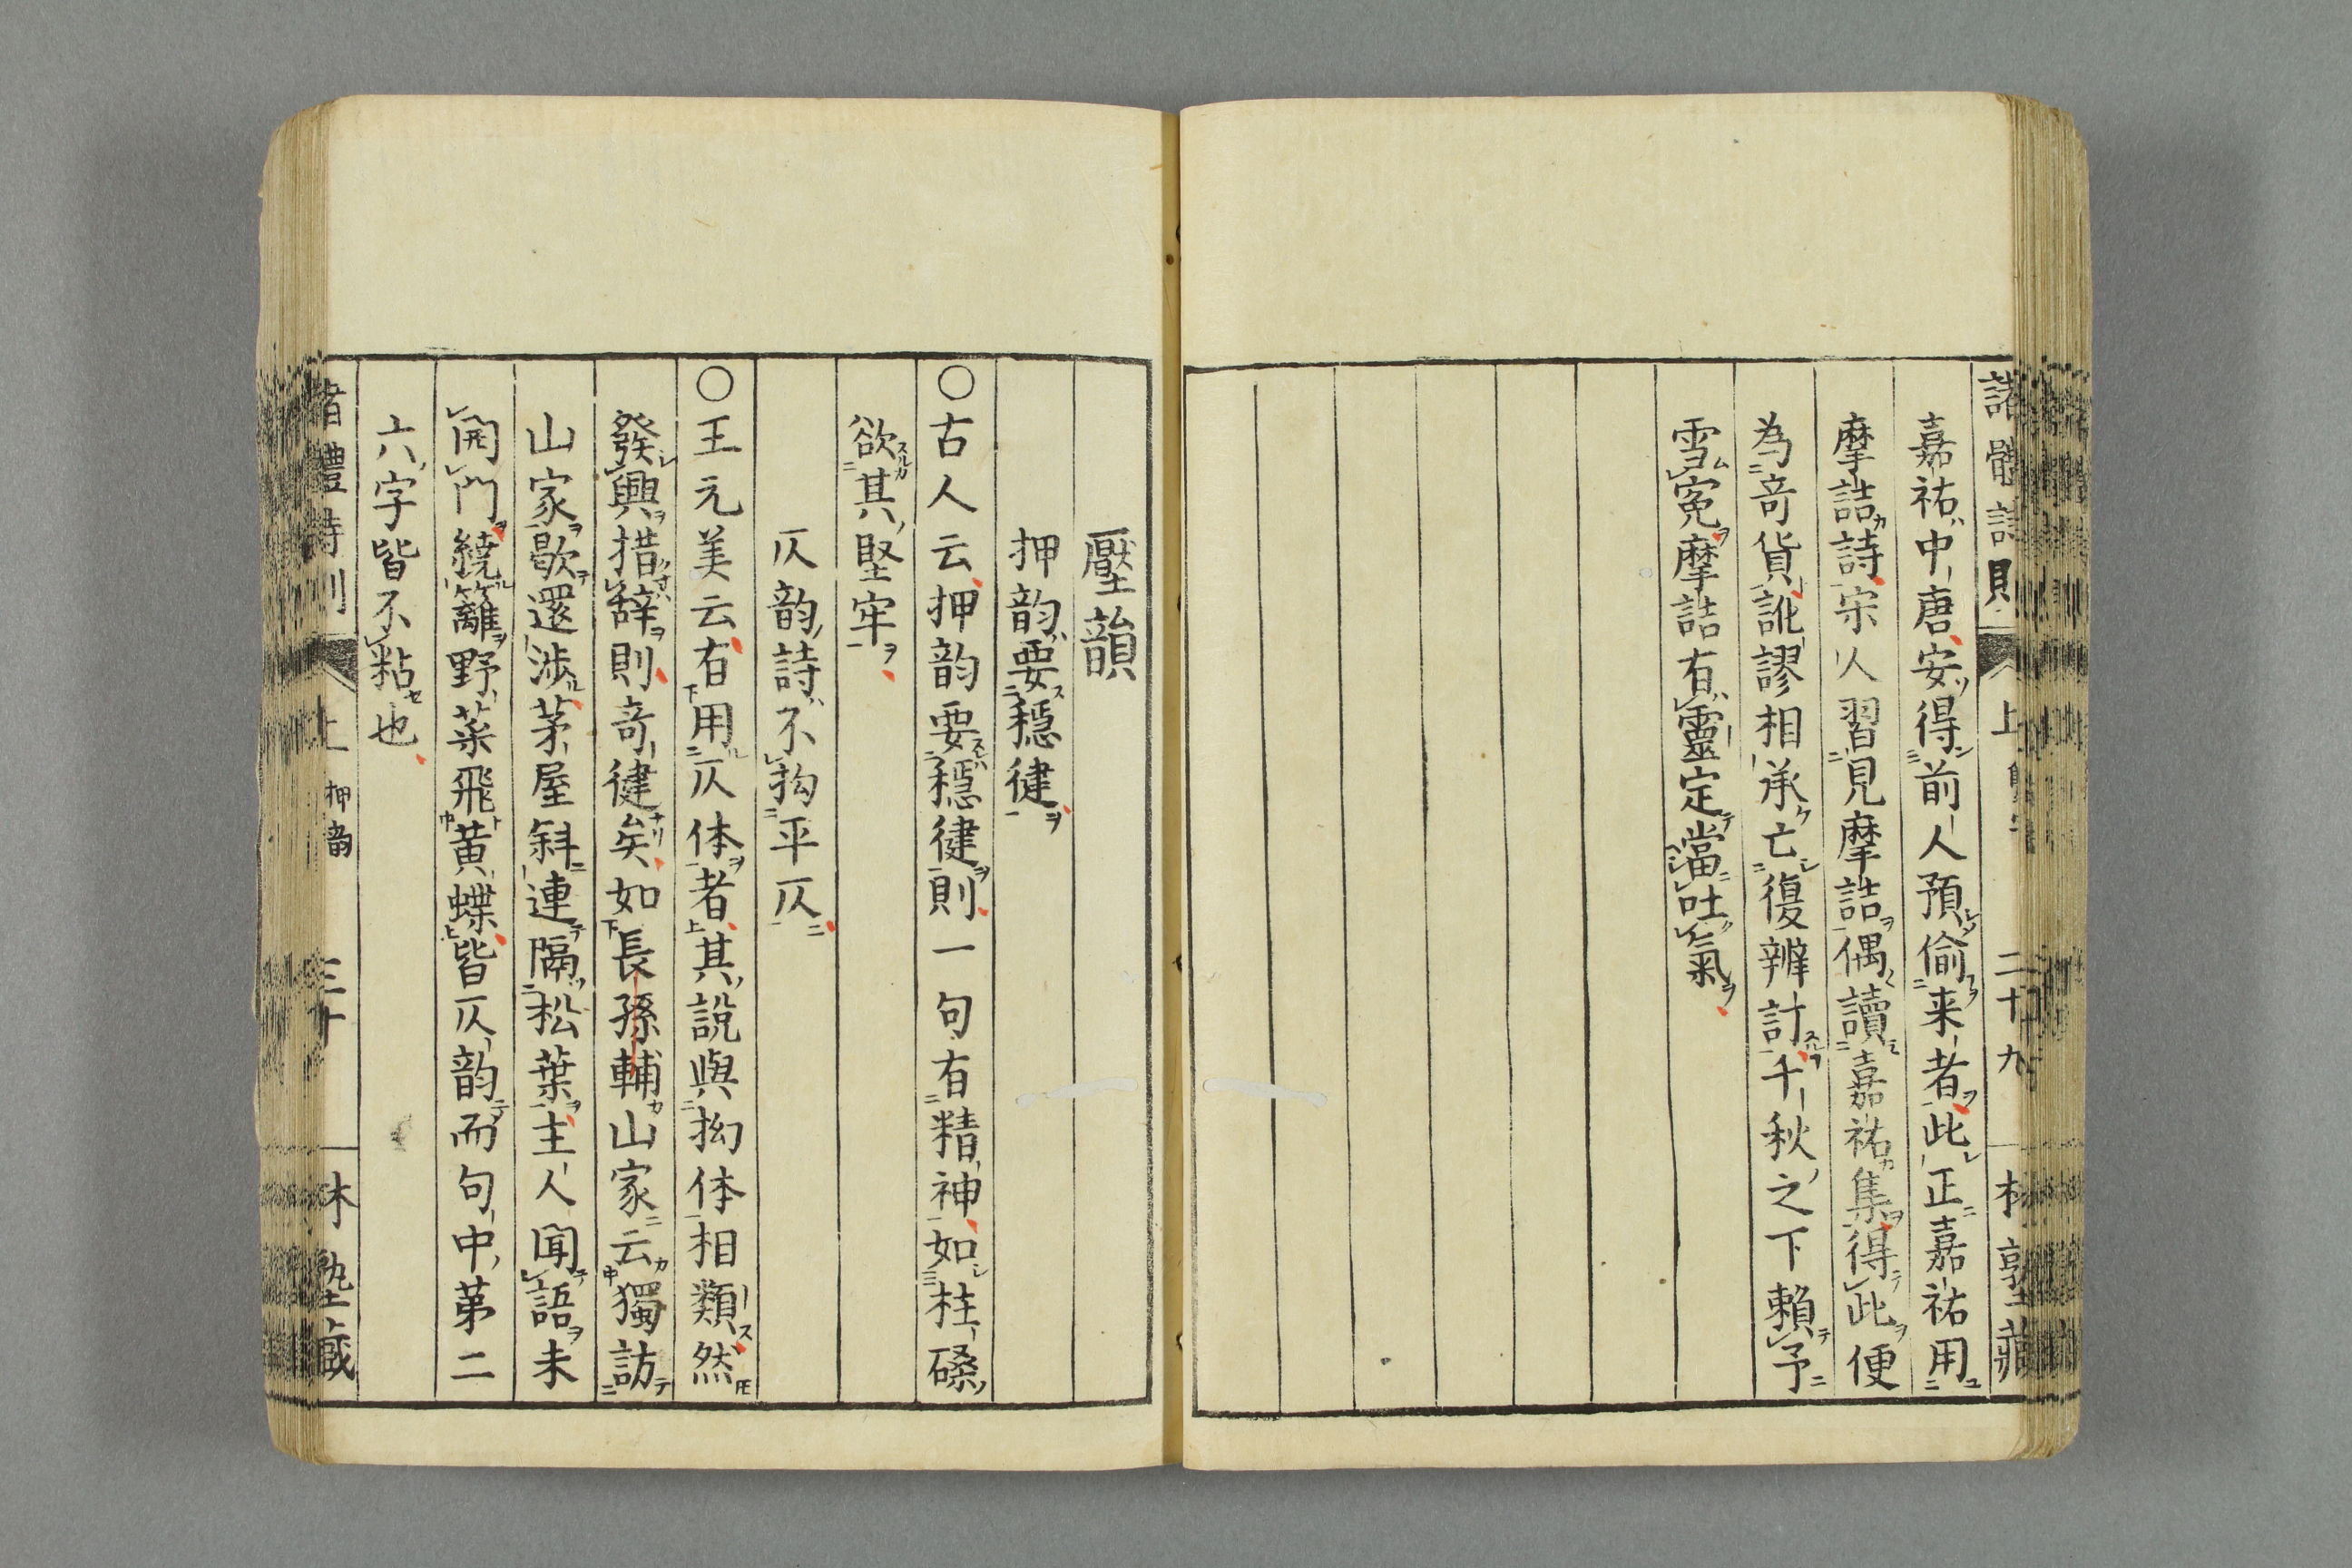 嘉祐中唐安得前人預偷来者此正嘉祐用
摩詰詩宋人習見摩詰偶讀嘉祐集得此便
為奇貨訛謬相承亡復辨計千秋之下賴予
雪寃摩詰有靈定當吐氣
壓韻
押韵要穩健
〇古人云押韵要穩健則一句有精神如柱磉
欲其堅牢
仄韵詩不拘平仄
〇王元美云有用仄体者其説與拗体相類然
發興措辞則奇健矣如長孫輔山家云獨訪
山家歇還渉茅屋斜連隔松葉主人聞語未
開門繞籬野菜飛黄蝶皆仄韵而句中第二
六字皆不粘也
上 押韵 三十